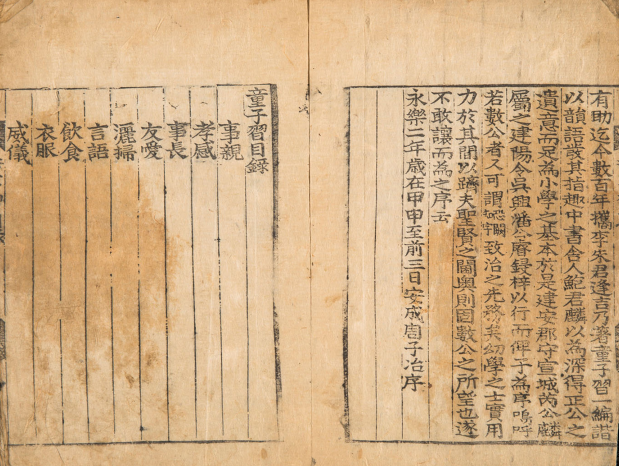 有助迄今數百年檇李朱君逢吉乃著童子習一編諧
以韻語敬其指趣中書舍人鮑君麟以為深得正公之
遺意而足為小學之基本於是建安郡守宣城芮公麟
屬之建陽令吳興潘公鋟梓以行而俾子為序嗚呼
若數公者又可謂 致治之先務矣幼學之士實用
力於其間以躋夫聖賢之閫奧則固數公之所望也遂
不敢讓而為之序云
永樂二年歲在甲申至前三日安成周子冶序
童子習目錄
事親
孝感
事長
友愛
灑掃
言語
飲食
衣服
威儀